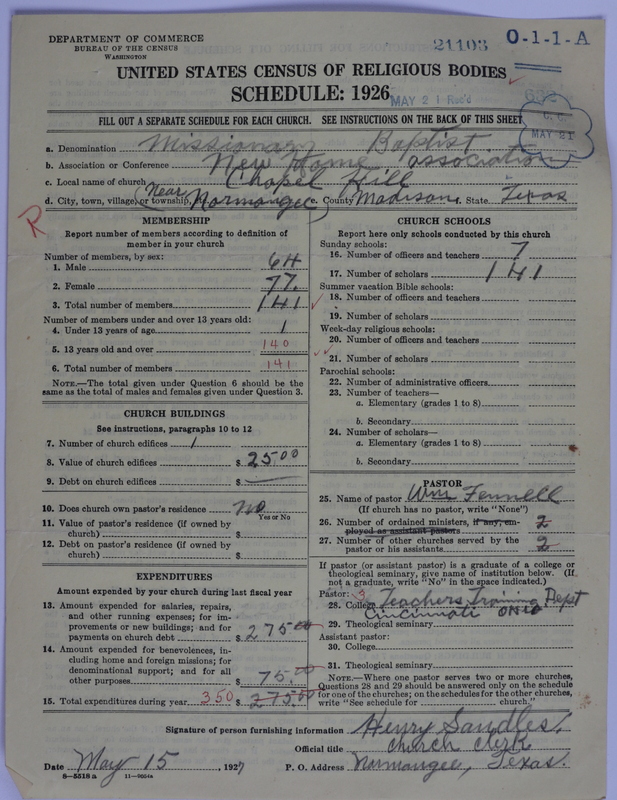 DEPARTMENT OF COMMERCE
BUREAU OF THE CENSUS
WASHINGTON
21103
O-1-1-A
UNITED STATES CENSUS OF RELIGIOUS BODIES
SCHEDULE: 1926
MAY 21 Rec'd
MAY 21
FILL OUT A SEPARATE SCHEDULE FOR EACH CHURCH. SEE INSTRUCTIONS ON THE BACK OF THIS SHEET
a. Denomination Missionary Baptist
b. Association or Conference New Home association
c. Local name of church Chapel Hill
d. City, town, village, or township, (Near Normangee) e. County Madison f. State Texas
R
MEMBERSHIP
Report number of members according to definition of
member in your church
Number of members, by sex:
1. Male 64
2. Female 77.
3. Total number of members 141
Number of members under and over 13 years old:
4. Under 13 years of age 1
5. 13 years old and over 140
6. Total number of members 141
NOTE.—The total given under Question 6 should be the
same as the total of males and females given under Question 3.
CHURCH BUILDINGS
See instructions, paragraphs 10 to 12
7. Number of church edifices 1
8. Value of church edifices $ 2500
9. Debt on church edifices $
10. Does church own pastor's residence No
Yes or No
11. Value of pastor's residence (if owned by
church) $
12. Debt on pastor's residence (if owned by
church) $
EXPENDITURES
Amount expended by your church during last fiscal year
13. Amount expended for salaries, repairs,
and other running expenses; for im-
provements or new buildings; and for
payments on church debt $ 275.00
14. Amount expended for benevolences, in-
cluding home and foreign missions; for
denominational support; and for all
other purposes $ 75.00
15. Total expenditures during year 350 $ 275.00
CHURCH SCHOOLS
Report here only schools conducted by this church
Sunday schools:
16. Number of officers and teachers 7
17. Number of scholars 141
Summer vacation Bible schools:
18. Number of officers and teachers
19. Number of scholars
Week-day religious schools:
20. Number of officers and teachers
21. Number of scholars
Parochial schools:
22. Number of administrative officers
23. Number of teachers—
a. Elementary (grades 1 to 8)
b. Secondary
24. Number of scholars—
a. Elementary (grades 1 to 8)
b. Secondary
PASTOR
25. Name of pastor Wm Fennell
(If church has no pastor, write "None")
26. Number of ordained ministers, if any, em-
ployed as assistant pastors 2
27. Number of other churches served by the
pastor or his assistants 2
If pastor (or assistant pastor) is a graduate of a college or
theological seminary, give name of institution below. (If
not a graduate, write "No" in the space indicated.)
Pastor: 3
28. College Teachers Training Dept
Cincinnati OHIO
29. Theological seminary
Assistant pastor:
30. College
31. Theological seminary
NOTE.—Where one pastor serves two or more churches,
Questions 28 and 29 should be answered only on the schedule
for one of the churches; on the schedules for the other churches,
write "See schedule for church."
Signature of person furnishing information Henry Sandles,
Official title church clerk
Date May 15, 1927 P. O. Address Normangee, Texas.
8—5518 a 11—9054a